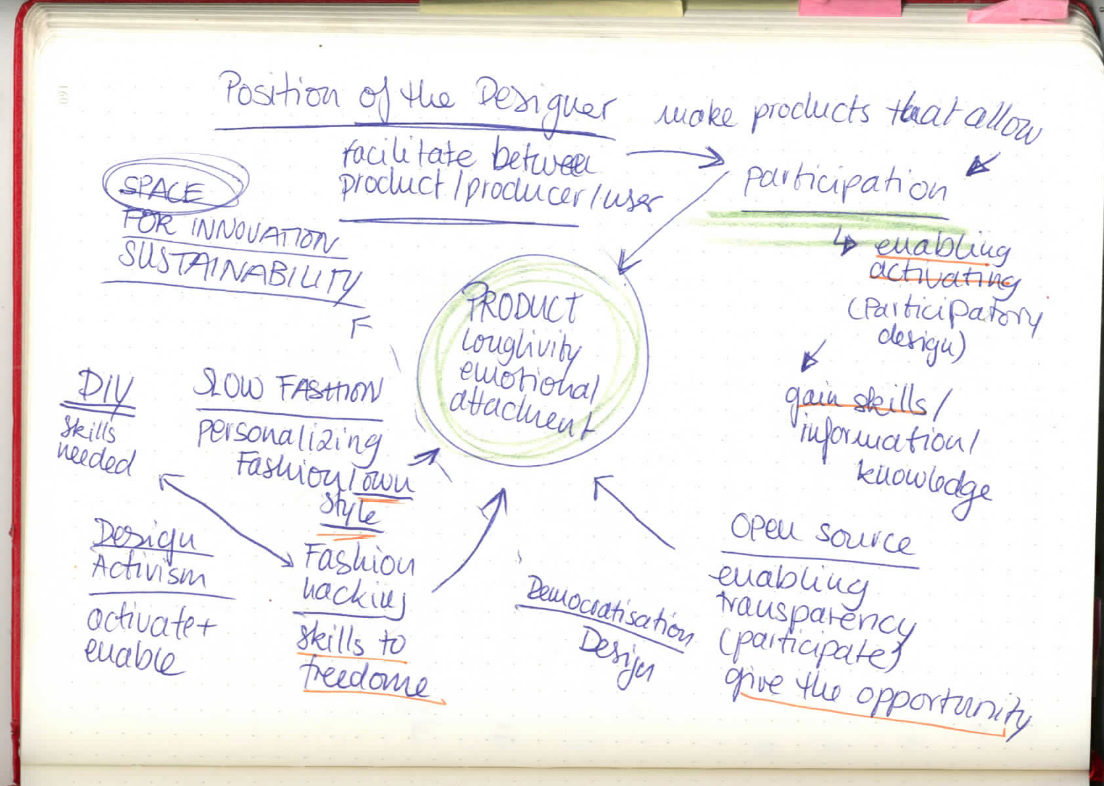 160
Position of the Designer
make products that allow
facilitate between
product/producer/user
participation
SPACE
FOR INNOVATION
SUSTAINABILITY
enabling
activating
(Participatory
design)
gain skills/
information/
knowledge
PRODUCT
longlivity
emotional
attachment
DIY
skills
needed
SLOW FASHION
personalizing
Fashion/own
style
Design
Activism
activate+
enable
Fashion
hacking
skills to
freedome
Democratisation
Design
open source
enabling
transparency
(participate)
give the opportunity